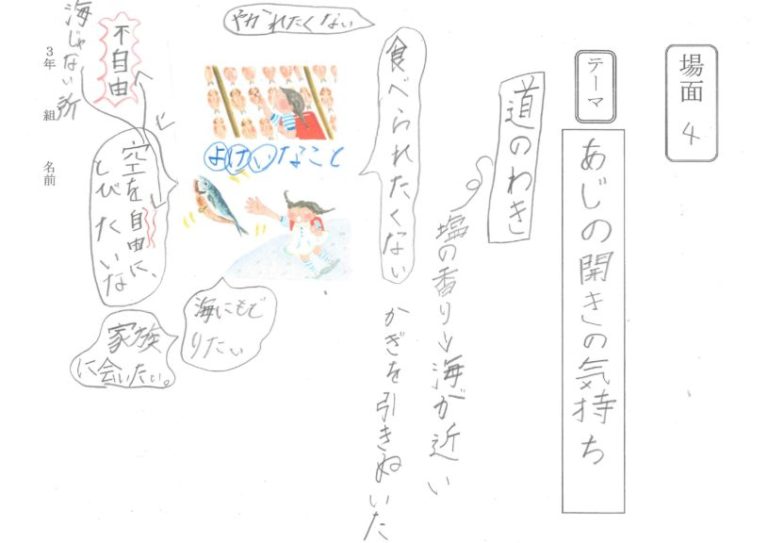 場面 4
テーマ
あじの開きの気持ち
道のわき
塩の香り→海が近い
かぎを引きぬいた
食べられたくない
やかれたくない
よけいなこと
海にもど
りたい
家族
に会いたい。
空を自由に、
とびたいな
不自由
海じゃない所
3年 組 名前